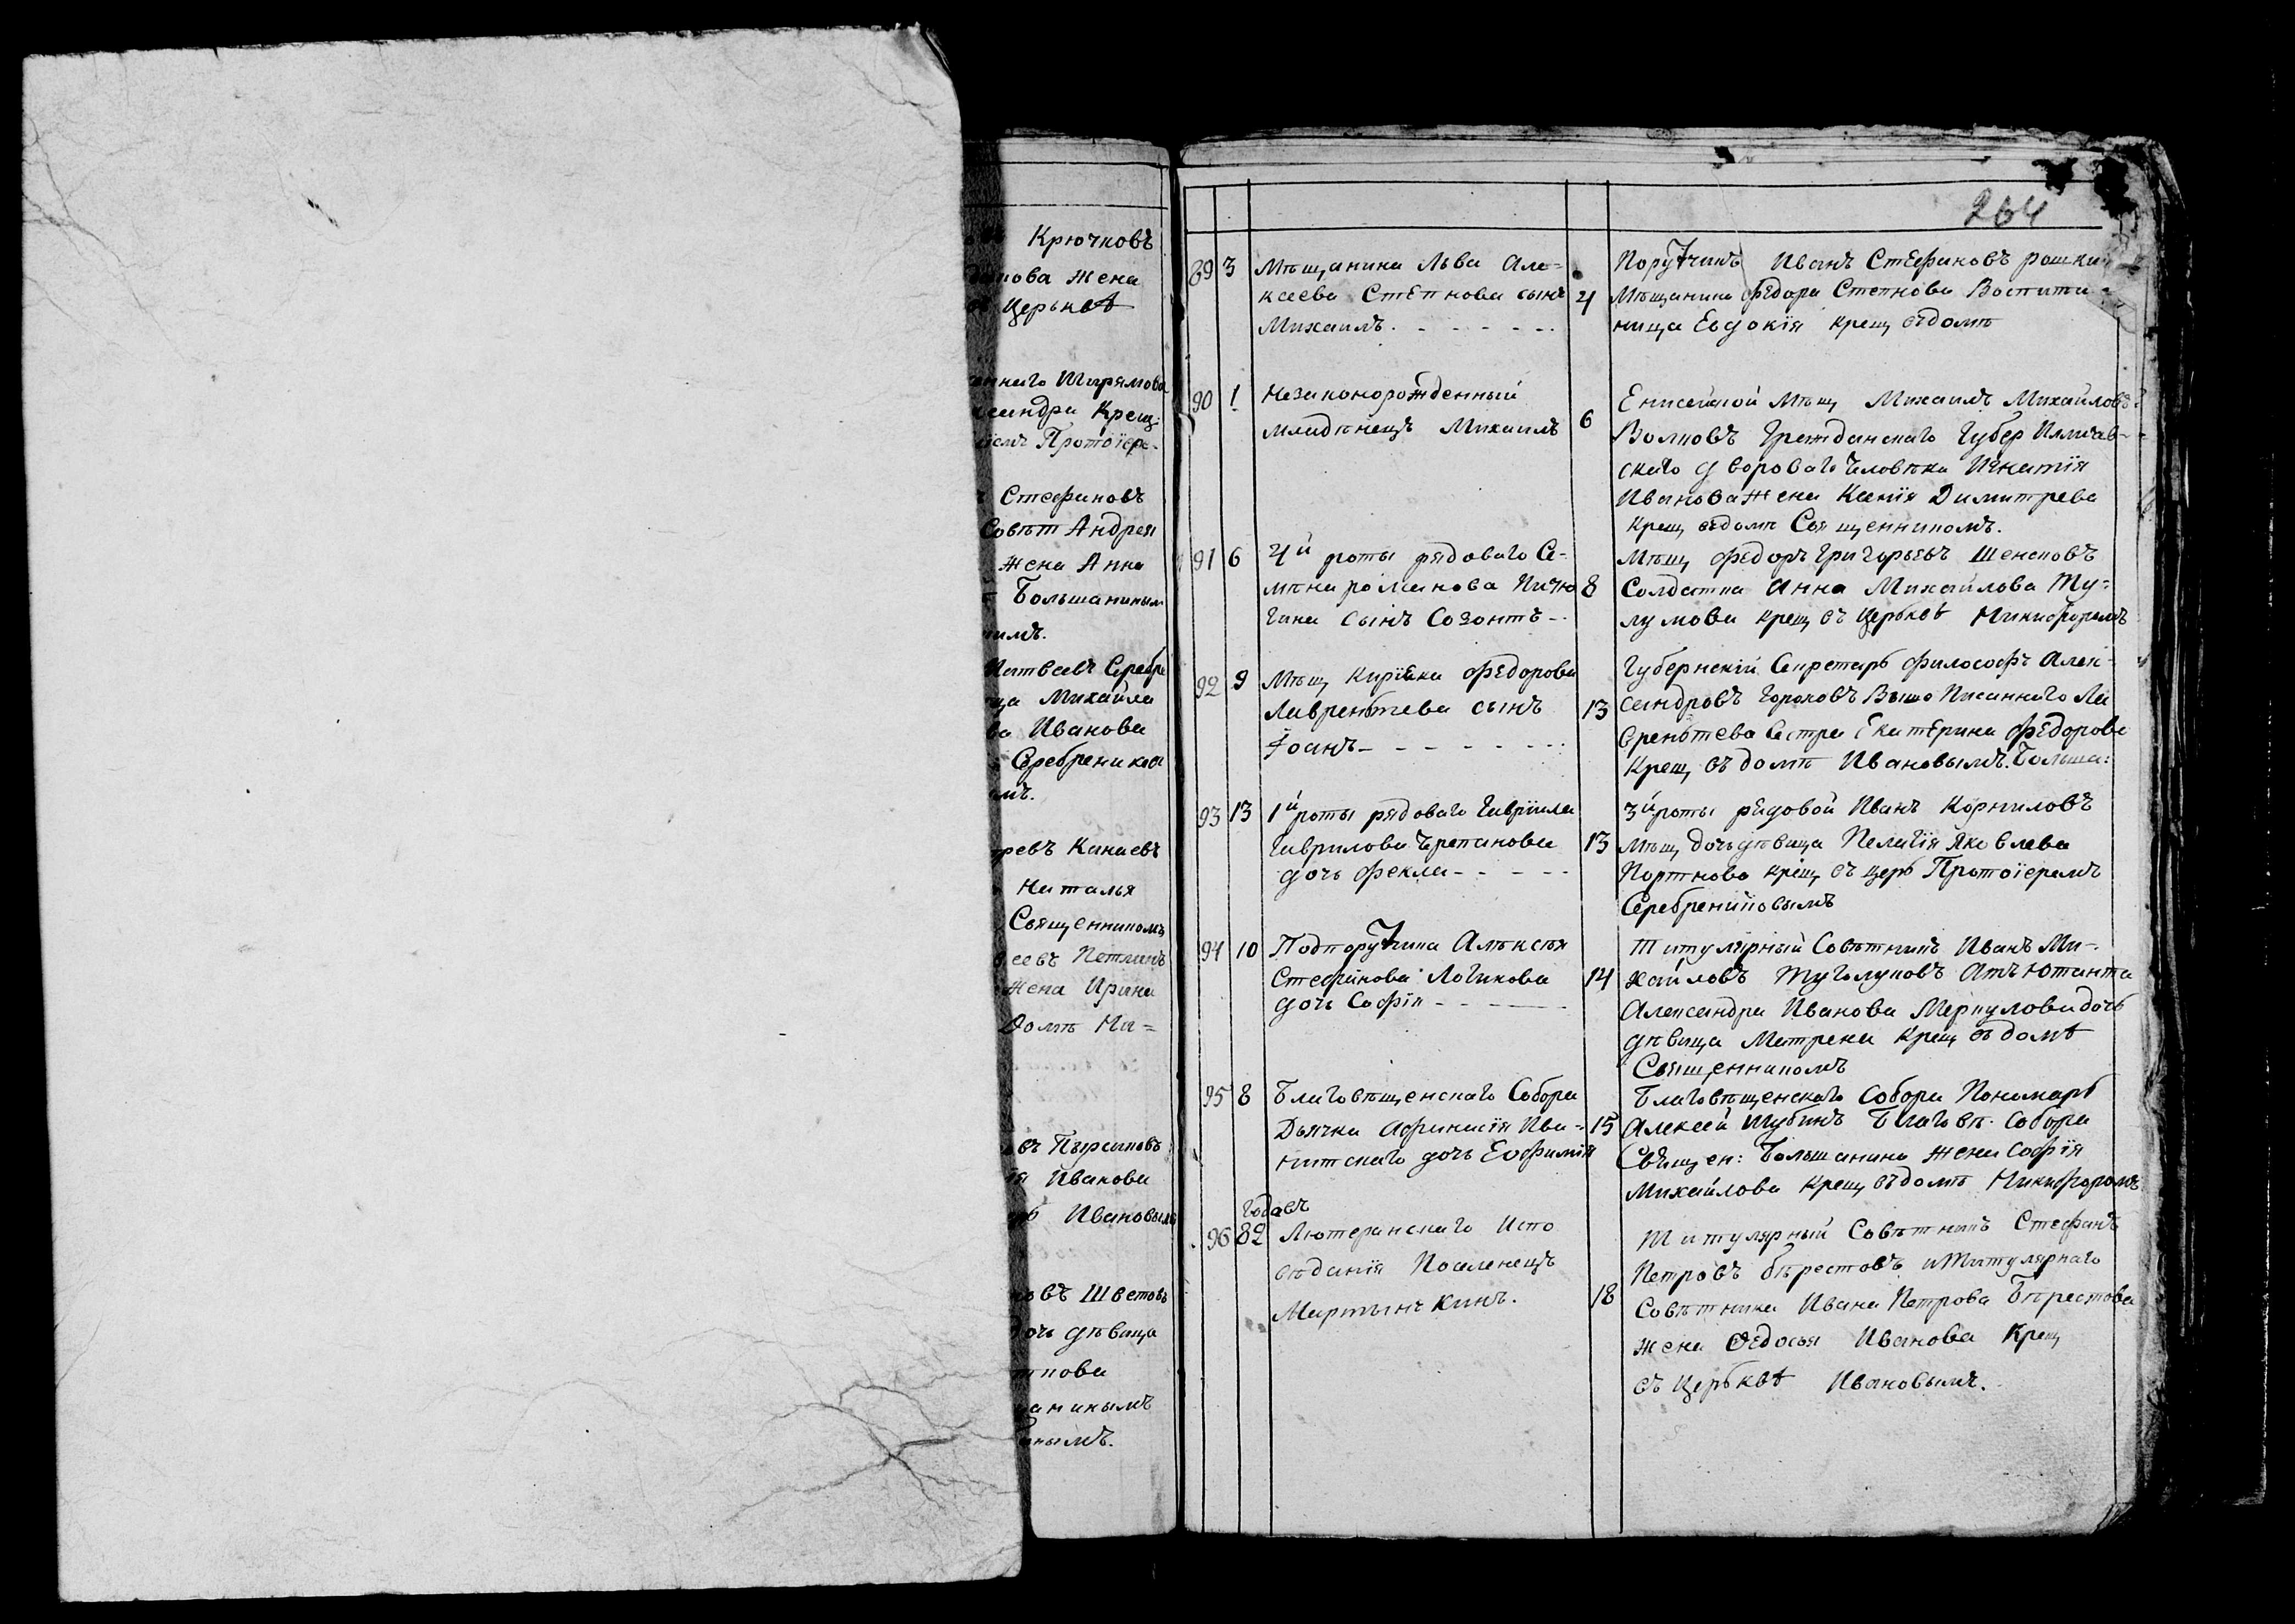 Крючковъ
пова жена
Церьквѣ
ннаго Ширямова
сандра Крещ:
Протоіере-
Стефановъ
Совѣт Андрея
жена Анна
Большаниным
Матвѣевъ Серебре
Михайла
Иванова
Серебреникова
Канаевъ
Наталья
Священникомъ
Жена Ирина
Домѣ Ни=
Иванова
Ивановымъ
Шветовъ
дочь дѣвица
264
89 3 Мѣщанина Льва Але=
ксеева Степнова сынъ
Михаилъ - - - - - -
4
Поручикъ Иванъ Стефановъ
Мѣщанина Федора Степнова Воспита=
ница Евдокія крещ въ домѣ
90 1 Незаконорожденный
младѣнецъ Михаилъ
6
Енисейской Мѣщ Михаилъ Михайловъ
Волковъ Гражданскаго Губер Илличев-
скаго двороваго человѣка Игнатія
Иванова жена Ксенія Димитрева
крещ въ домѣ Священникомъ.
91 6 4й роты рядоваго Се-
мѣна романова Пичю
гина сынъ Созонтъ -
8
Мѣщ Федоръ Григорьевъ Шенсповъ
Солдатка Анна Михайлова Ту=
лумова крещ въ Церьквѣ Никифоромъ
92 9 Мѣщ Киріяка Федорова
Лаврентева сынъ
Іоанъ - - - - - - -
13
Губернскій Секретарь Философъ Алек-
сандровъ Гороховъ Выше Писаннаго Ла
врентева Сестра Екатерина Федорова
Крещ въ домѣ Ивановымъ. Больша:
93 13 1й роты рядоваго Гавріила
Гаврилова Черепанова
дочь Фекла - - - - -
13
3й роты рядовой Иванъ Корниловъ
мѣщ дочь дѣвица Пелагія Яковлева
Портнова крещ въ церь Протоіереемъ
Серебрениковымъ
94 10 Подпоручика Алѣксѣя
Стефанова Логинова
дочь Софія - - -
14
Титулярный Совѣтникъ Иванъ Ми-
хайловъ Туголуковъ Адъютанта
Александра Иванова Меркулова дочь
дѣвица Матрена Крещ въ домѣ
Священникомъ
95 8 Благовѣщенскаго Собора
Дьячка Афанасія Ива-
нитскаго дочь Евфимія
15
Благовѣщенскаго Собора Пономарь
Алексей Шубинъ Благовѣ. Собора
Священ: Большанина жена Софія
Михайлова Крещ въ домѣ Никифоромъ
годавъ
96 82 Лютеранскаго Испо
вѣданія Поселенецъ
Мартынъ Кинъ.
18
Титулярный Совѣтникъ Стефанъ
Петровъ бѣрестовъ и Титулярнаго
Совѣтника Ивана Петрова Бѣрестова
жена Федосья Иванова Крещ
въ Церьквѣ Ивановымъ.